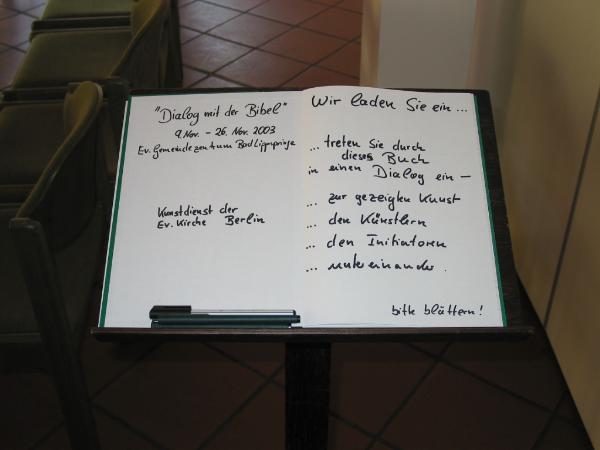 "Dialog mit der Bibel"
9. Nov. – 26. Nov. 2003
Ev. Gemeindezentrum Bad Lippspringe
Kunstdienst der
Ev. Kirche Berlin
Wir laden Sie ein ...
... treten Sie durch
dieses Buch
in einen Dialog ein –
... zur gezeigten Kunst
... den Künstlern
... den Initiatoren
... untereinander.
bitte blättern!